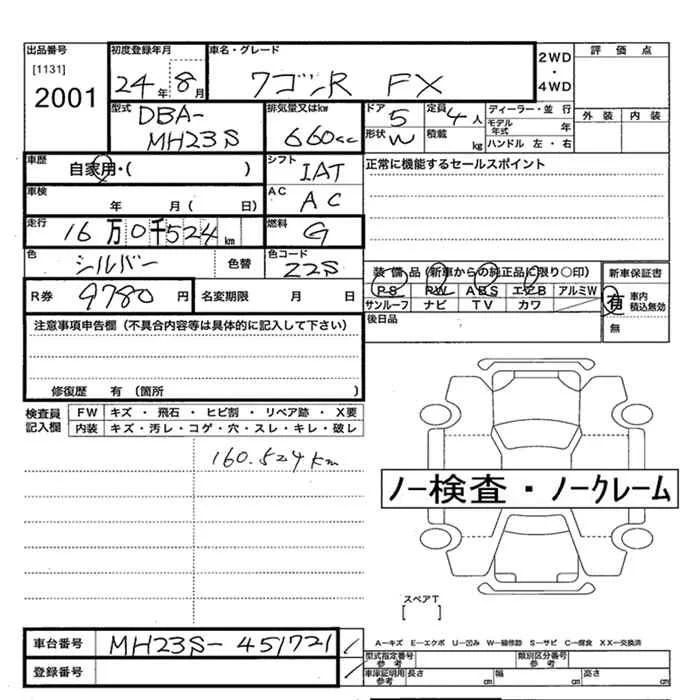 出品番号 初度登録年月 車名・グレード 2WD・4WD 評価点
[1131]
2001
24年8月 ワゴンR FX
外装 内装
型式 DBA-MH23S 排気量又はkw 660cc ドア 5 形状 W 定員 4人 積載 kg ディーラー・並行 モデル年式 年 ハンドル 左・右
車歴 自家用・( ) シフト IAT 正常に機能するセールスポイント
車検 年 月( 日) AC AC
走行 16万0千524km 燃料 G
色 シルバー 色替 色コード Z2S
装備品(新車からの純正品に限り○印) 新車保証書
PS PW ABS エアB アルミW
サンルーフ ナビ TV カワ
有 車内積込無効
無
R券 9780円 名変期限 月 日
後日品
注意事項申告欄(不具合内容等は具体的に記入して下さい)
修復歴 有(箇所 )
検査員記入欄 FW キズ・飛石・ヒビ割・リペア跡・X要
内装 キズ・汚レ・コゲ・穴・スレ・キレ・破レ
160.524km
ノー検査・ノークレーム
スペアT
[ ]
車台番号 MH23S-451721
登録番号
A-キズ E-エクボ U-凹み W-補修跡 S-サビ C-腐食 XX-交換済
型式指定番号 参考 類別区分番号 参考
車庫証明用 参考 長さ cm 幅 cm 高さ cm